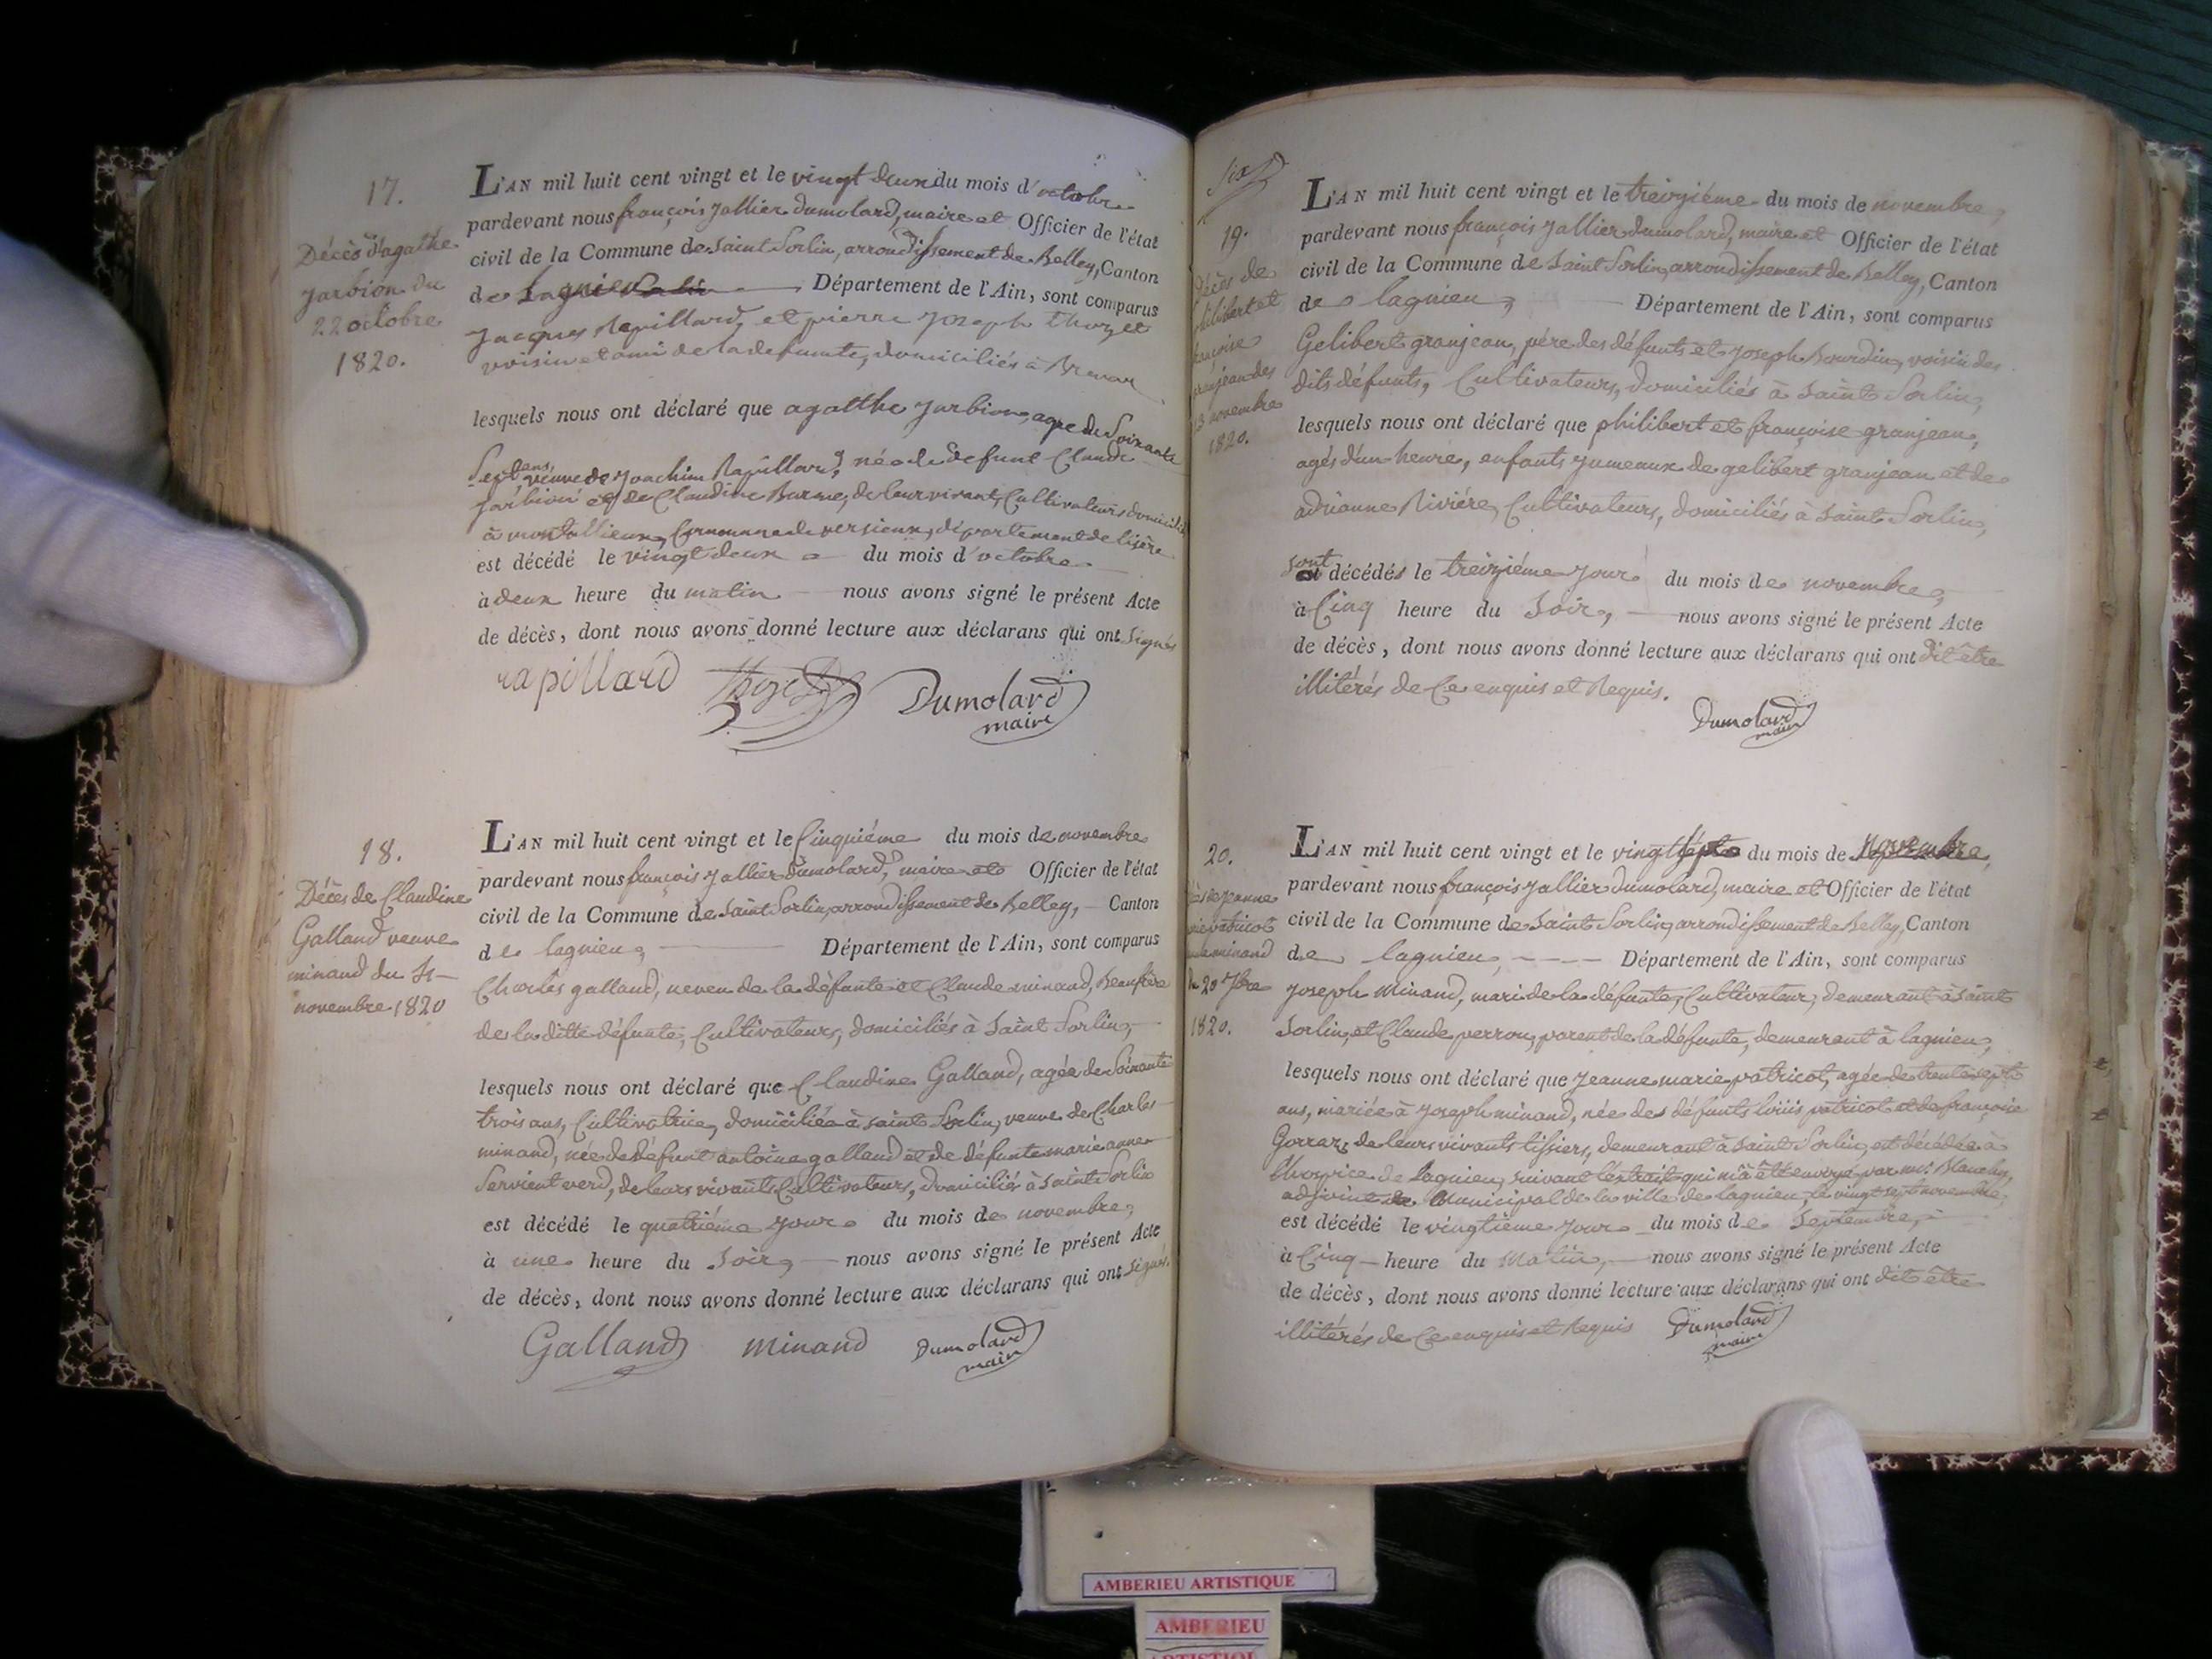 17.
Décès d'agathe
jarbion du
22 octobre
1820.
L'AN mil huit cent vingt et le vingt deux du mois d'octobre
pardevant nous françois jallier dumolard, maire et Officier de l'état
civil de la Commune de Saint Sorlin, arrondissement de Belley, Canton
de Lagnieu Département de l'Ain, sont comparus
Jacques Rapillard, et pierre Joseph thozet
voisin et ami de la defunte, domiciliés à
lesquels nous ont déclaré que agatthe jarbion, agée de Soixante
Sept ans, veuve de Joachim Rapillard, née de defunt Claude
jarbion et de Claudine Burme, de leur vivant, Cultivateurs domiciliés
à montallieux, Commune de versieux, département de l'isère
est décédé le vingt deux du mois d'octobre
à deux heure du matin nous avons signé le présent Acte
de décès, dont nous avons donné lecture aux déclarans qui ont signés
rapillard Thozet Dumolard
maire
18.
Décès de Claudine
Galland veuve
minand du
novembre 1820
L'AN mil huit cent vingt et le Cinquiéme du mois de novembre
pardevant nous françois jallier dumolard, maire et Officier de l'état
civil de la Commune de Saint Sorlin, arrondissement de Belley, Canton
de lagnieu, Département de l'Ain, sont comparus
Charles galland, neveu de la défunte et Claude minand, Beaufrère
de la ditte défunte, Cultivateurs, domiciliés à Saint Sorlin,
lesquels nous ont déclaré que Claudine Galland, agée de Soixante
trois ans, Cultivatrice, domiciliée à saint Sorlin, veuve de Charles
minand, née de défunt antoine galland et de défunte marie anne
Servient verd, de leurs vivants Cultivateurs, domiciliés à Saint Sorlin
est décédé le quatriéme jour du mois de novembre,
à une heure du Soir, nous avons signé le présent Acte
de décès, dont nous avons donné lecture aux déclarans qui ont signés.
Galland minand Dumolard
maire
Six
19.
Décès de
philibert et
françoise
granjean des
13 novembre
1820.
L'AN mil huit cent vingt et le treiziéme du mois de novembre,
pardevant nous françois jallier dumolard, maire et Officier de l'état
civil de la Commune de Saint Sorlin, arrondissement de Belley, Canton
de lagnieu, Département de l'Ain, sont comparus
Gelibert granjean, pére des défunts et joseph Bourdin, voisin des
dits défunts, Cultivateurs, domiciliés à Saint Sorlin,
lesquels nous ont déclaré que philibert et françoise granjean,
agés d'un heure, enfants jumeaux de gelibert granjean et de
adrianne Riviére, Cultivateurs, domiciliés à Saint Sorlin,
sont décédés le treiziéme jour du mois de novembre,
à Cinq heure du Soir, nous avons signé le présent Acte
de décès, dont nous avons donné lecture aux déclarans qui ont dit être
illitérés de Ce enquis et Requis.
Dumolard
maire
20.
patricot
minand
du 20 7bre
1820.
L'AN mil huit cent vingt et le vingt sept du mois de Novembre,
pardevant nous françois jallier dumolard, maire et Officier de l'état
civil de la Commune de Saint Sorlin, arrondissement de Belley, Canton
de lagnieu, Département de l'Ain, sont comparus
joseph minand, mari de la défunte, Cultivateur, demeurant à Saint
Sorlin, et Claude perron, parent de la défunte, demeurant à lagnieu,
lesquels nous ont déclaré que jeanne marie patricot, agée de trente sept
ans, mariée à joseph minand, née des défunts louis patricot et de françoise
Gorraz, de leurs vivants tissiers, demeurant à Saint Sorlin, est décédée à
l'hospice de Lagnieu, suivant l'extrait qui m'a été envoyé par mr.
adjoint municipal de la ville de lagnieu, le vingt sept novembre,
est décédé le vingtiéme jour du mois de Septembre,
à Cinq heure du Matin, nous avons signé le présent Acte
de décès, dont nous avons donné lecture aux déclarans qui ont dit être
illitérés de Ce enquis et Requis Dumolard
maire
AMBERIEU ARTISTIQUE
AMBERIEU
ARTISTIQUE